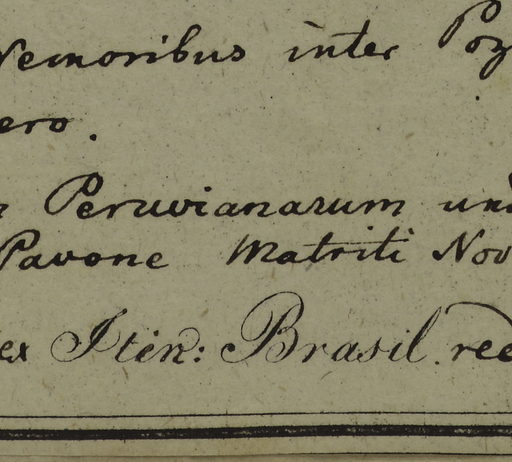 Nemoribus inter Poz
ero.
Peruvianarum und
Pavone Matriti Nov
ex Itin: Brasil. red